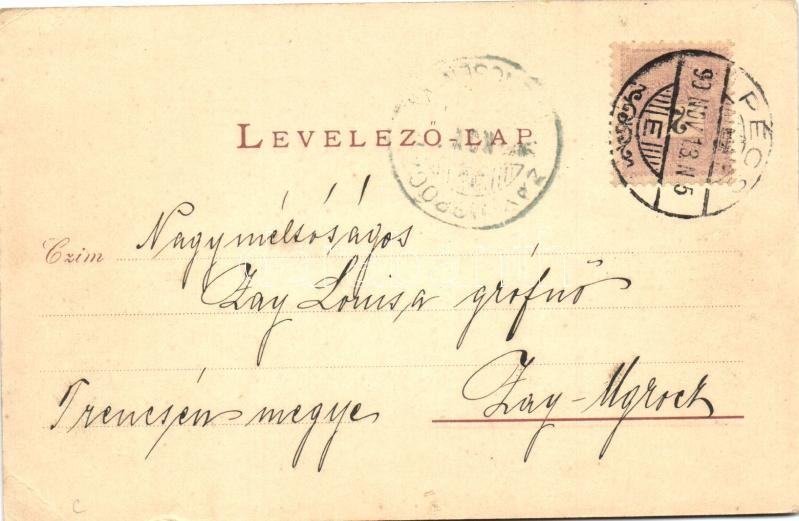 LEVELEZŐ-LAP
PÉCS
99 NOV. 13. N 5
E
2
Czim Nagyméltóságos
Zay Louisa grófnő
Trencsén megye Zay-Ugrocz